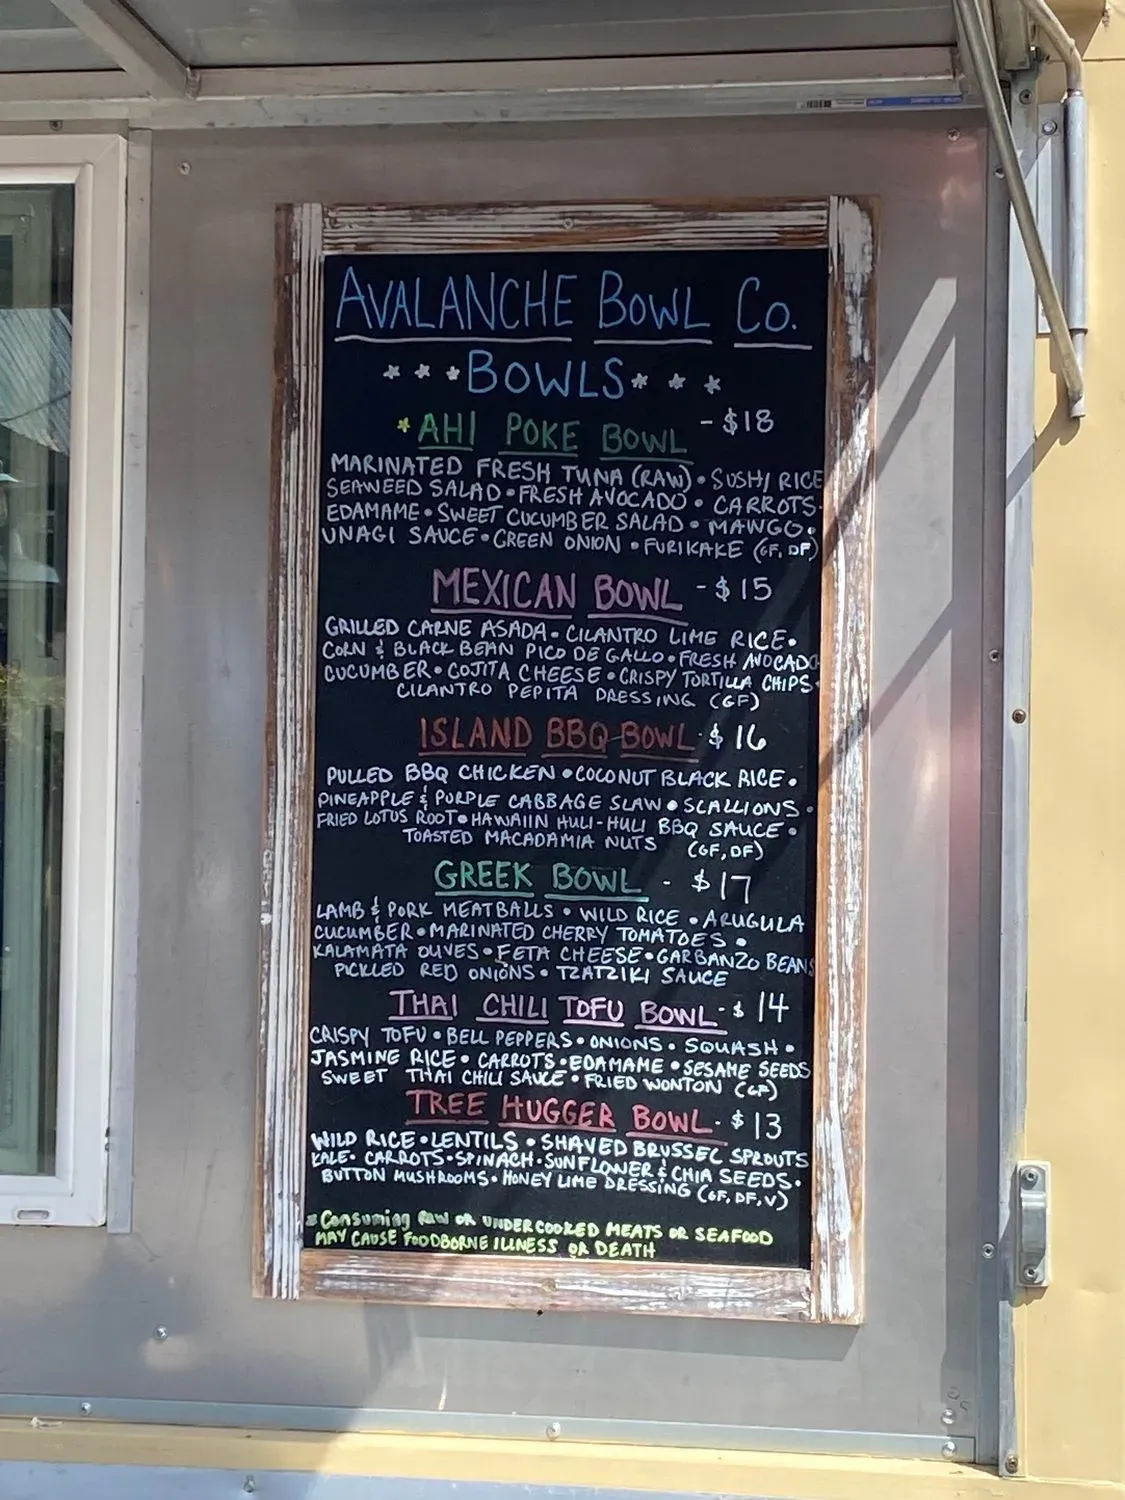 AVALANCHE BOWL CO.
***BOWLS***
*AHI POKE BOWL - $18
MARINATED FRESH TUNA (RAW) • SUSHI RICE
SEAWEED SALAD • FRESH AVOCADO • CARROTS •
EDAMAME • SWEET CUCUMBER SALAD • MANGO •
UNAGI SAUCE • GREEN ONION • FURIKAKE (GF, DF)
MEXICAN BOWL - $15
GRILLED CARNE ASADA • CILANTRO LIME RICE •
CORN & BLACK BEAN PICO DE GALLO • FRESH AVOCADO
CUCUMBER • COJITA CHEESE • CRISPY TORTILLA CHIPS •
CILANTRO PEPITA DRESSING (GF)
ISLAND BBQ BOWL - $16
PULLED BBQ CHICKEN • COCONUT BLACK RICE •
PINEAPPLE & PURPLE CABBAGE SLAW • SCALLIONS •
FRIED LOTUS ROOT • HAWAIIN HULI-HULI BBQ SAUCE •
TOASTED MACADAMIA NUTS (GF, DF)
GREEK BOWL - $17
LAMB & PORK MEATBALLS • WILD RICE • ARUGULA
CUCUMBER • MARINATED CHERRY TOMATOES •
KALAMATA OLIVES • FETA CHEESE • GARBANZO BEANS
PICKLED RED ONIONS • TZATZIKI SAUCE
THAI CHILI TOFU BOWL - $14
CRISPY TOFU • BELL PEPPERS • ONIONS • SQUASH •
JASMINE RICE • CARROTS • EDAMAME • SESAME SEEDS
SWEET THAI CHILI SAUCE • FRIED WONTON (GF)
TREE HUGGER BOWL - $13
WILD RICE • LENTILS • SHAVED BRUSSEL SPROUTS
KALE • CARROTS • SPINACH • SUNFLOWER & CHIA SEEDS •
BUTTON MUSHROOMS • HONEY LIME DRESSING (GF, DF, V)
*Consuming RAW OR UNDERCOOKED MEATS OR SEAFOOD
MAY CAUSE FOODBORNE ILLNESS OR DEATH